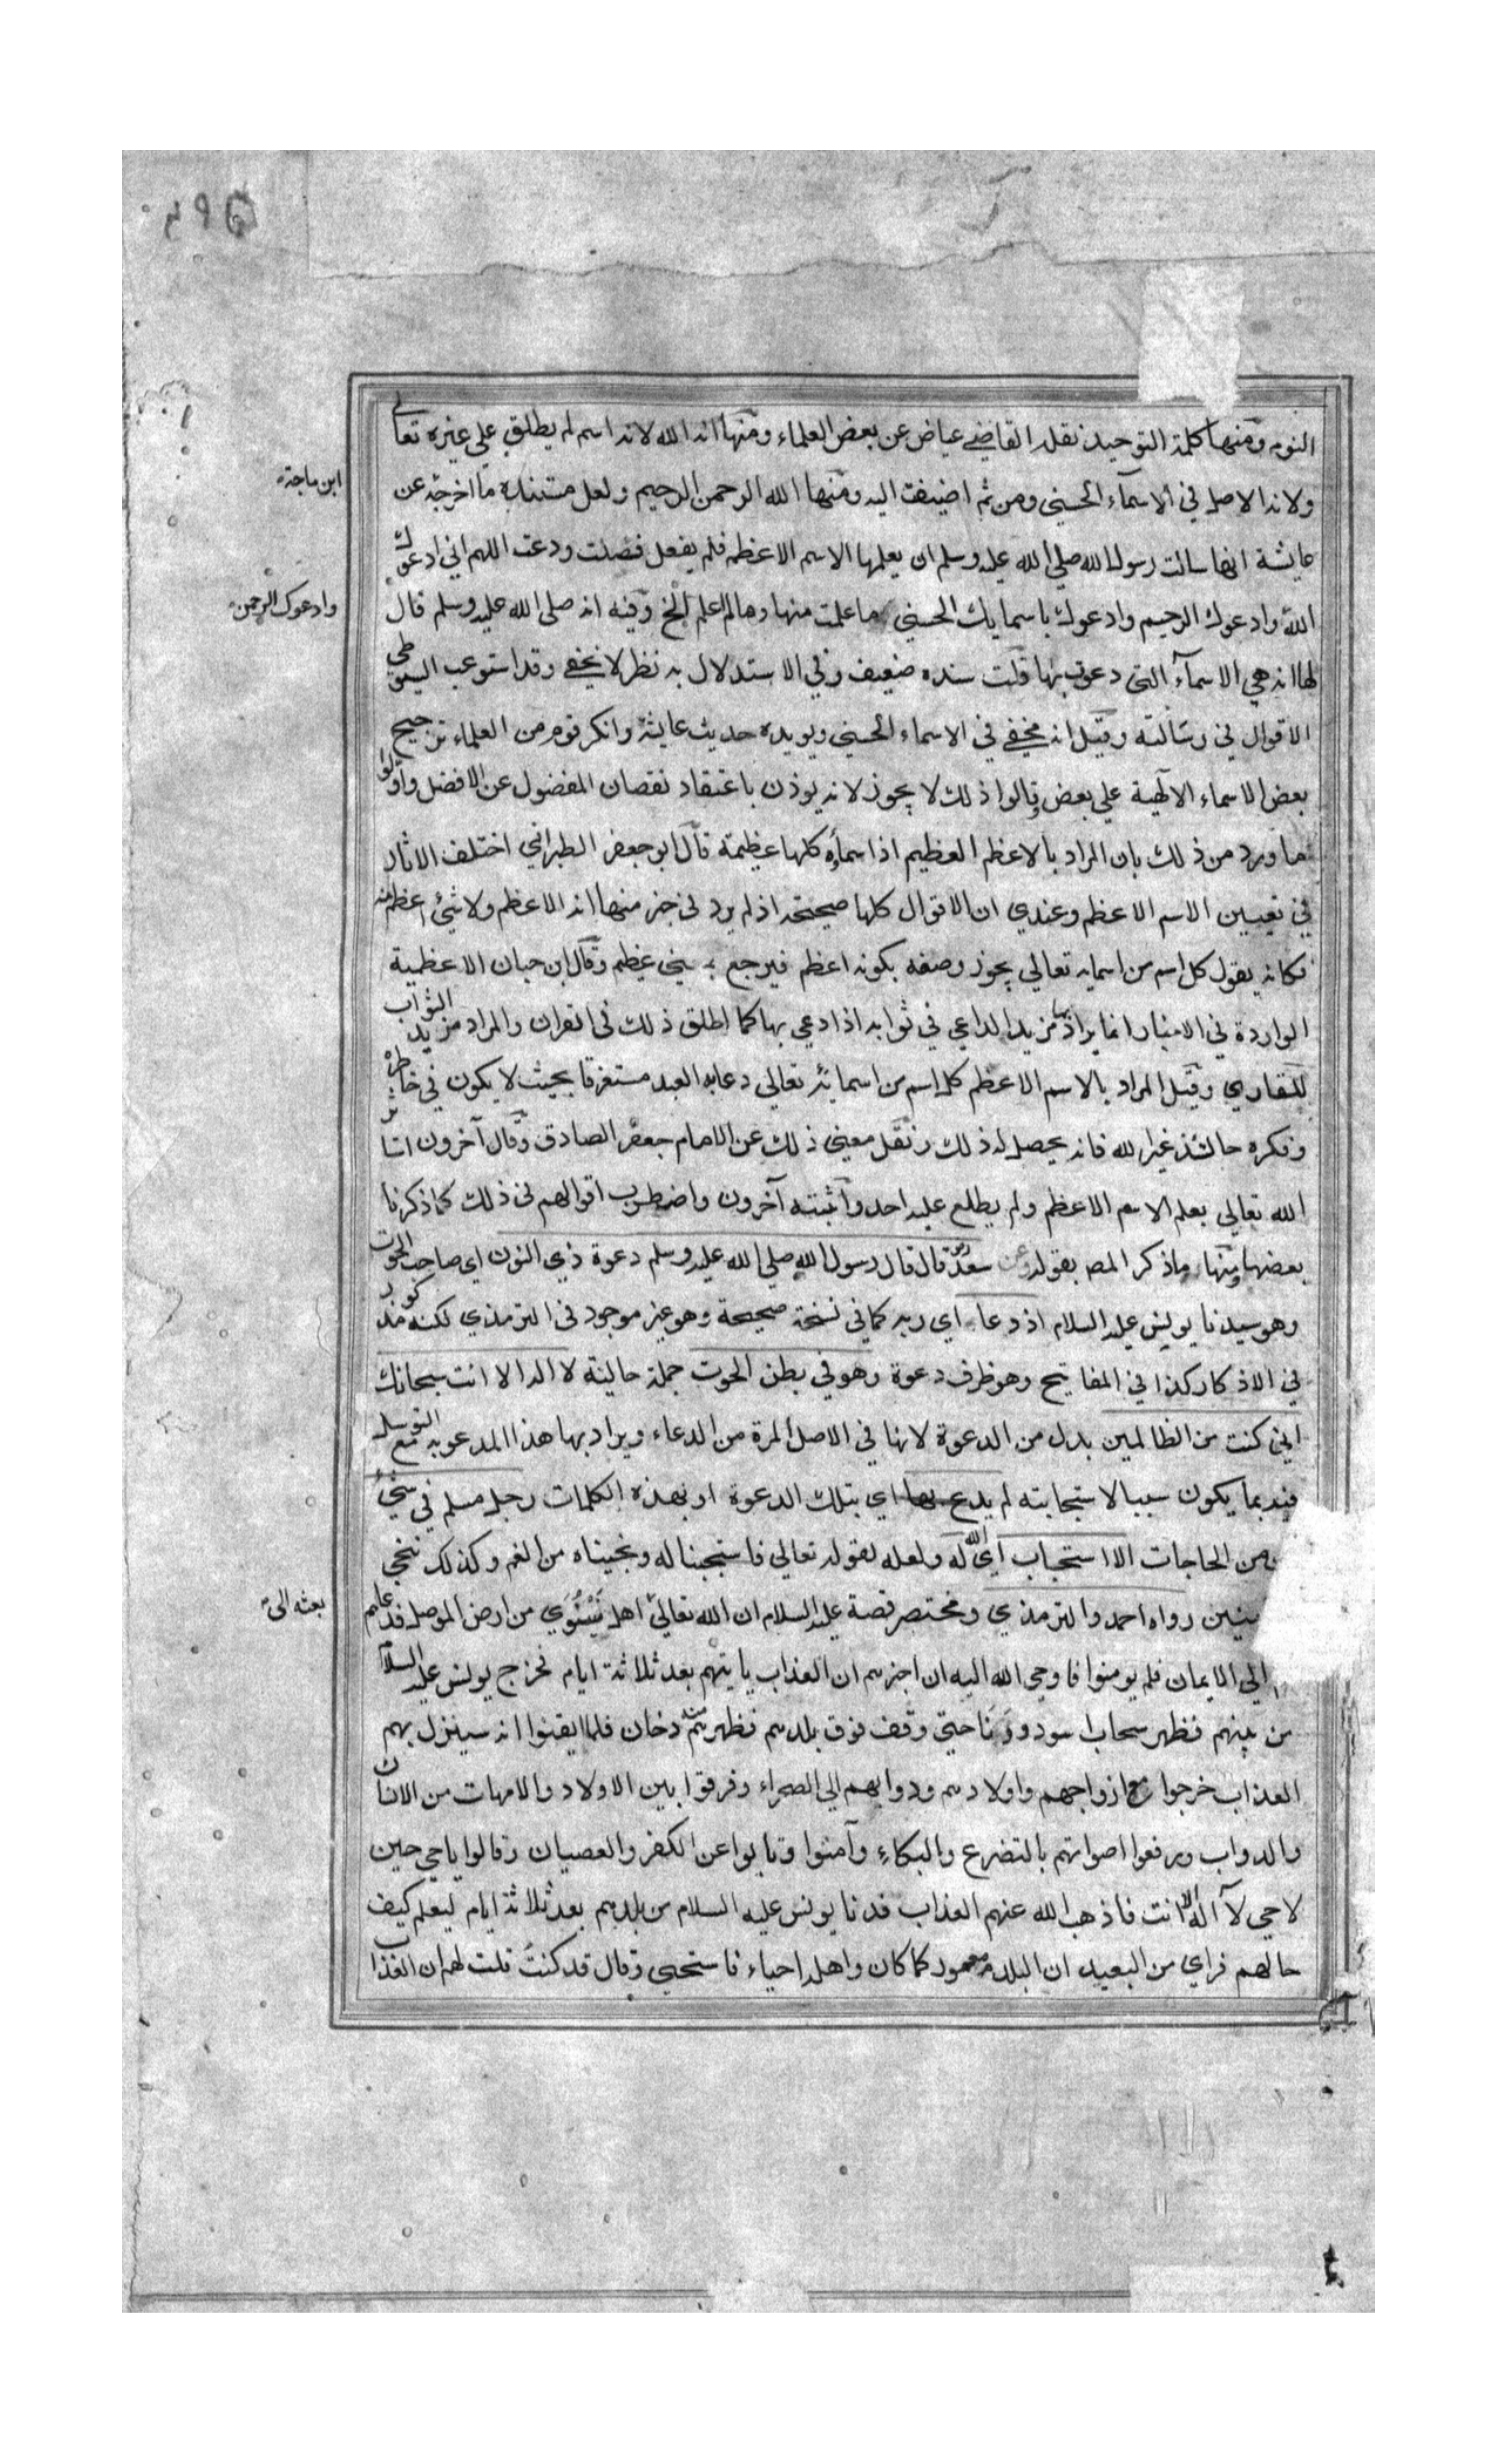 النوم ومنها كلمة التوحيد نقله القاضي عياض عن بعض العلماء ومنها انه الله لانه اسم لم يطلق على غيره تعالى
ولانه الاصل في الاسماء الحسنى ومن ثم اضيفت اليه ومنها الله الرحمن الرحيم ولعل مستنده ما اخرجه عن
ابن ماجة
عايشة انها سالت رسول الله صلى الله عليه وسلم ان يعلمها الاسم الاعظم فلم يفعل فصلت ودعت اللهم اني ادعوك
الله وادعوك الرحيم وادعوك باسمايك الحسنى ما علمت منها وما لم اعلم الخ وفيه انه صلى الله عليه وسلم قال
وادعوك الرحمن
لها انه هي الاسماء التي دعوت بها قلت سنده ضعيف وفي الاستدلال به نظر لا يخفى وقد استوعب السيوطي
الاقوال في رسالته وقيل انه مخفي في الاسماء الحسنى ويويده حديث عايشة وانكر قوم من العلماء ترجيح
بعض الاسماء الالهية على بعض وقالوا ذلك لا يجوز لانه يوذن باعتقاد نقصان المفضول عن الافضل واولوا
ما ورد من ذلك بان المراد بالاعظم العظيم اذ اسماؤه كلها عظيمة قال ابو جعفر الطبراني اختلف الاثار
في تعيين الاسم الاعظم وعندي ان الاقوال كلها صحيحة اذ لم يرد في خبر منها انه الاعظم ولا شئ اعظم منه
فكانه يقول كل اسم من اسمايه تعالى يجوز وصفه بكونه اعظم فيرجع بمعنى عظيم وقال ابن حبان الاعظمية
الواردة في الاخبار انما يراد بها مزيد الداعي في ثوابه اذا دعي بها كما اطلق ذلك في القران والمراد مزيد الثواب
للقاري وقيل المراد بالاسم الاعظم كل اسم من اسمائه تعالى دعا به العبد مستغرقا بحيث لا يكون في خاطره
وفكره حالتئذ غير الله فانه يحصل له ذلك ونقل معنى ذلك عن الامام جعفر الصادق وقال آخرون استاثر
الله تعالى بعلم الاسم الاعظم ولم يطلع عليه احد واثبته آخرون واضطرب اقوالهم في ذلك كما ذكرنا
بعضها ومنها ما ذكر المص بقوله وعن سعد قال قال رسول الله صلى الله عليه وسلم دعوة ذي النون اي صاحب الحوت
وهو سيدنا يونس عليه السلام اذ دعا اي ربه كما في نسخة صحيحة وهو غير موجود في الترمذي لكنه مذكور
في الاذكار كذا في المفاتيح وهو ظرف دعوة وهو في بطن الحوت جملة حالية لا اله الا انت سبحانك
اني كنت من الظالمين بدل من الدعوة لانها في الاصل المرة من الدعاء ويراد بها هذا المدعو به مع التوسل
فيه بما يكون سببا لاستجابته لم يدع بها اي بتلك الدعوة او بهذه الكلمات رجل مسلم في شئ
من الحاجات الا استجاب اي الله له ولعله لقوله تعالى فاستجبنا له ونجيناه من الغم وكذلك ننجي
رواه احمد والترمذي ومختصر قصة عليه السلام ان الله تعالى اهل نينوى من ارض الموصل فدعاهم
بعثه الى
الى الايمان فلم يومنوا فاوحى الله اليه ان اخبرهم ان العذاب ياتيهم بعد ثلاثة ايام فخرج يونس عليه السلام
من بينهم فظهر سحاب اسود ودنا حتى وقف فوق بلدهم فظهر منه دخان فلما ايقنوا انه سينزل بهم
العذاب خرجوا مع ازواجهم واولادهم ودوابهم الى الصحراء وفرقوا بين الاولاد والامهات من الانسان
والدواب ورفعوا اصواتهم بالتضرع والبكاء وآمنوا وتابوا عن الكفر والعصيان وقالوا يا حي حين
لا حي لا اله الا انت فاذهب الله عنهم العذاب فدنا يونس عليه السلام من بلدهم بعد ثلاثة ايام ليعلم كيف
حالهم فراى من البعيد ان البلد معمور كما كان واهله احياء فاستحيى وقال قد كنت قلت لهم ان العذاب